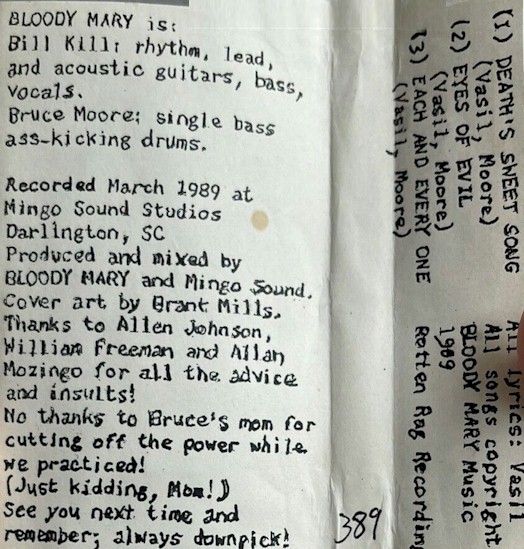 BLOODY MARY is:
Bill Kill: rhythm, lead,
and acoustic guitars, bass,
vocals.
Bruce Moore; single bass
ass-kicking drums.
Recorded March 1989 at
Mingo Sound Studios
Darlington, SC
Produced and mixed by
BLOODY MARY and Mingo Sound.
Cover art by Brant Mills.
Thanks to Allen Johnson,
William Freeman and Allan
Mozingo for all the advice
and insults!
No thanks to Bruce's mom for
cutting off the power while
we practiced!
(Just kidding, Mom!)
See you next time and
remember; always downpick!
389
(1) DEATH'S SWEET SONG
(Vasil, Moore)
(2) EYES OF EVIL
(Vasil, Moore)
(3) EACH AND EVERY ONE
(Vasil, Moore)
All lyrics: Vasil
All songs copyright
BLOODY MARY Music
1989
Rotten Rag Recording